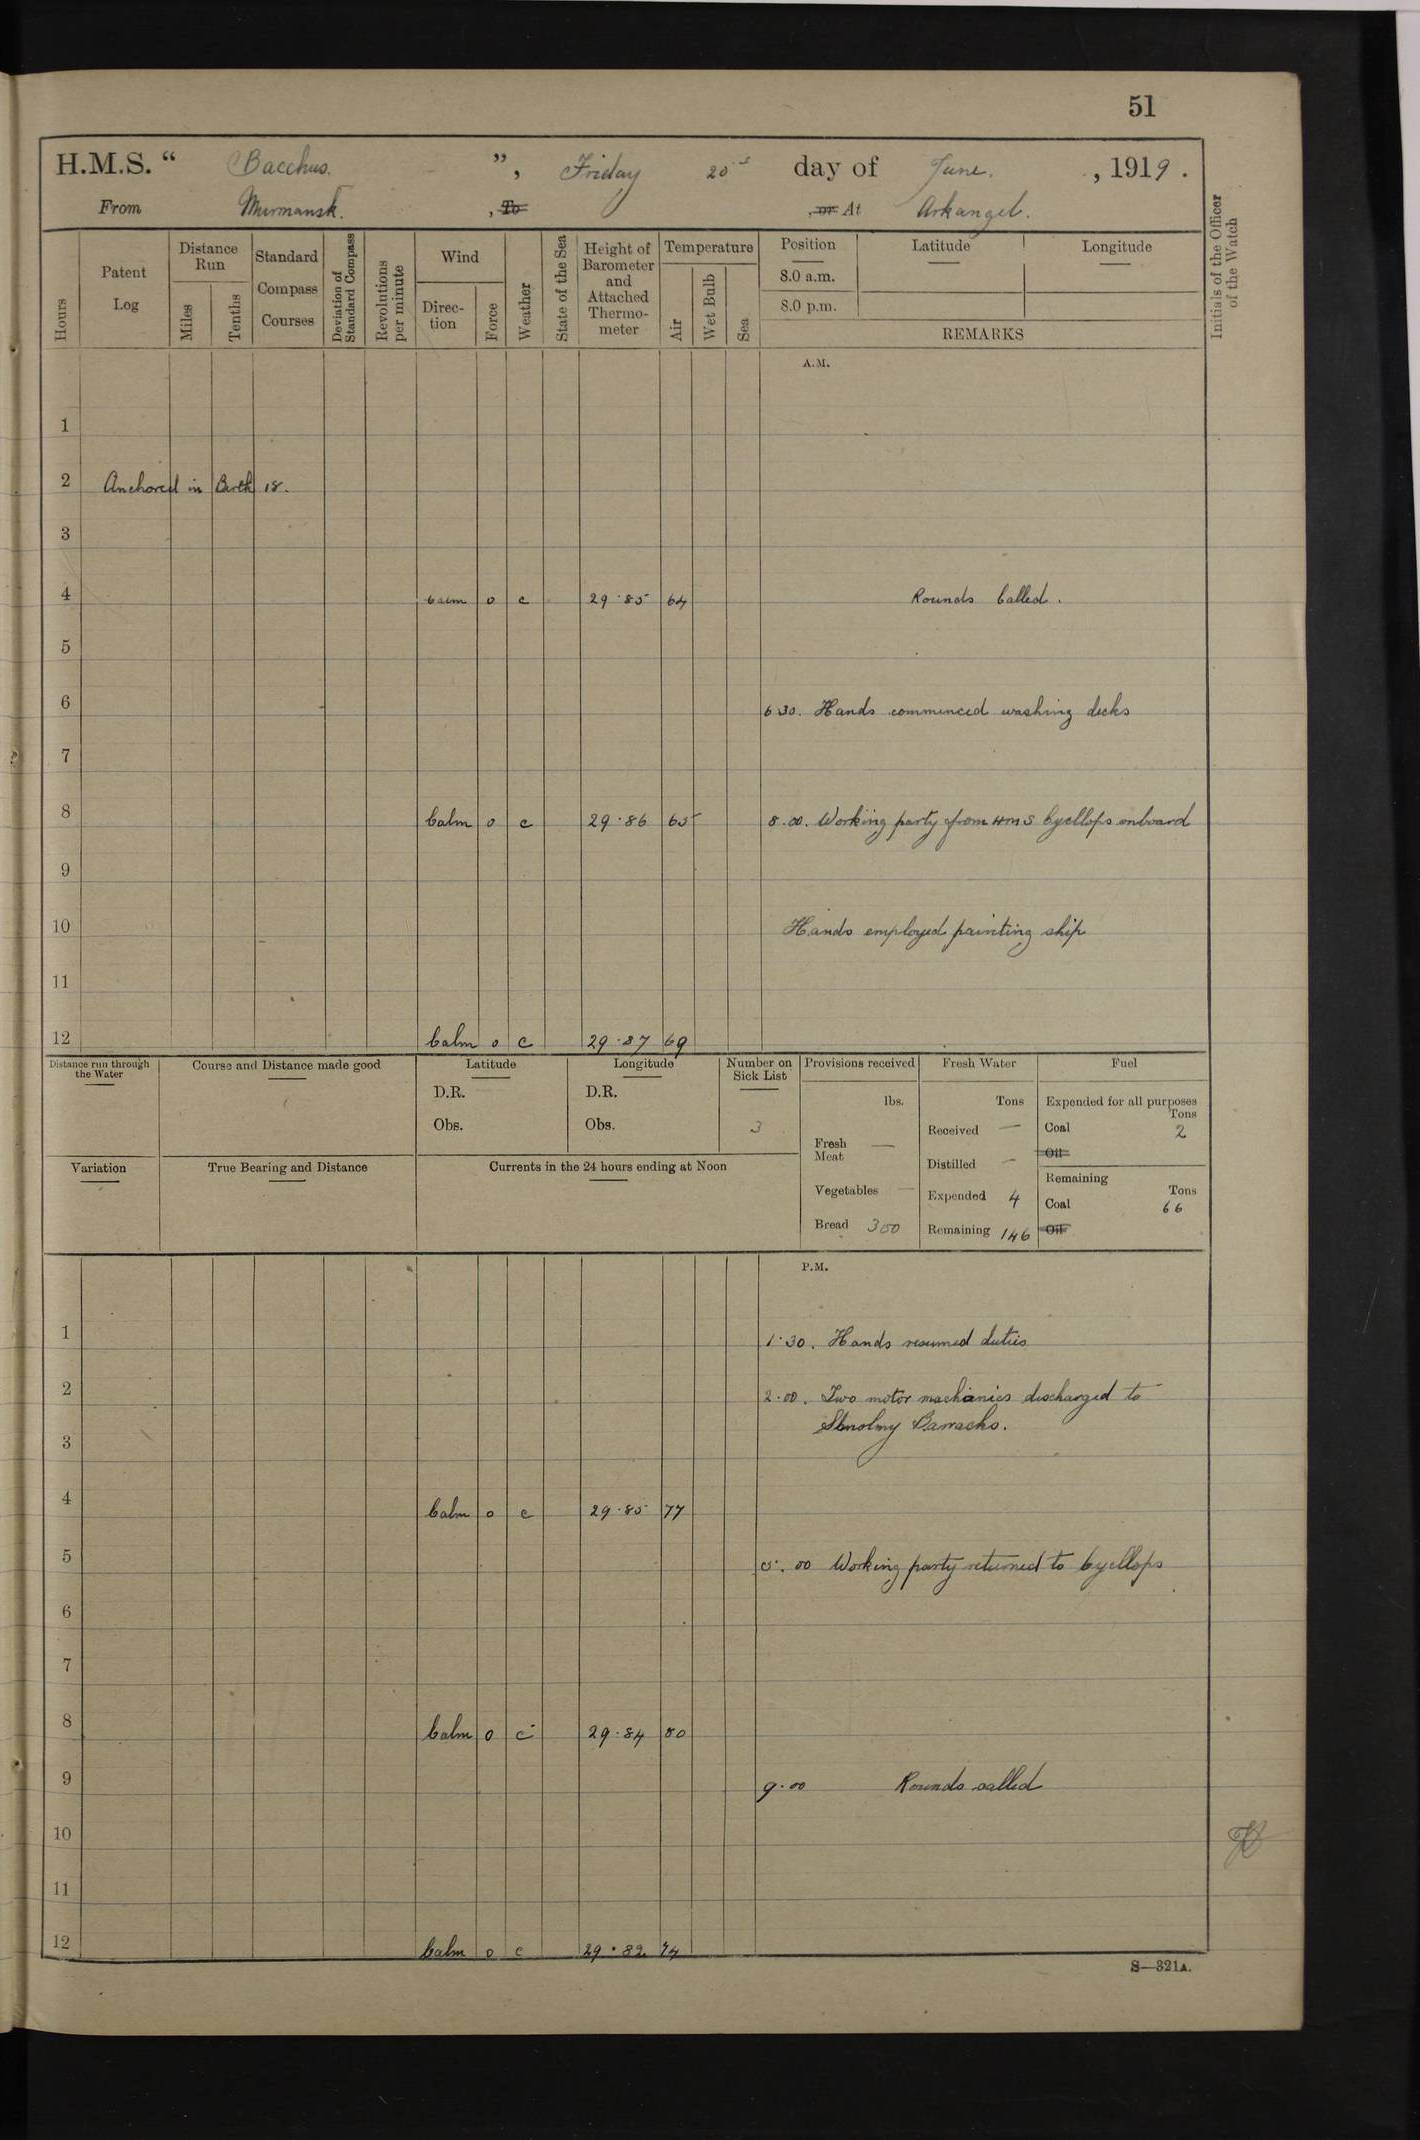 51
H.M.S. " Bacchus. ", Friday 20th day of June. , 1919.
From Murmansk. , To , or At Arkangel.
Hours
Patent Log
Distance Run
Miles
Tenths
Standard Compass Courses
Deviation of Standard Compass
Revolutions per minute
Wind
Direction
Force
Weather
State of the Sea
Height of Barometer and Attached Thermometer
Temperature
Air
Wet Bulb
Sea
Position
Latitude
Longitude
8.0 a.m.
8.0 p.m.
REMARKS
Initials of the Officer of the Watch
A.M.
1
2 Anchored in Berth 18.
3
4 Calm 0 c 29.85 64 Rounds Called.
5
6 6.30. Hands commenced washing decks
7
8 Calm 0 c 29.86 65 8.00. Working party from HMS Cycllops onboard
9
10 Hands employed painting ship
11
12 Calm 0 c 29.87 69
Distance run through the Water
Course and Distance made good
Latitude
D.R.
Obs.
Longitude
D.R.
Obs.
Number on Sick List
3
Variation
True Bearing and Distance
Currents in the 24 hours ending at Noon
Provisions received
lbs.
Fresh Meat —
Vegetables —
Bread 300
Fresh Water
Tons
Received —
Distilled —
Expended 4
Remaining 146
Fuel
Expended for all purposes
Tons
Coal 2
Oil
Remaining
Tons
Coal 66
Oil
P.M.
1 1.30. Hands resumed duties
2 2.00. Two motor mechanics discharged to
Barracks.
3
4 Calm 0 c 29.85 77
5 5.00 Working party returned to Cycllops
6
7
8 Calm 0 c 29.84 80
9 9.00 Rounds called
10
11
12 Calm 0 c 29.82 74
S—321A.